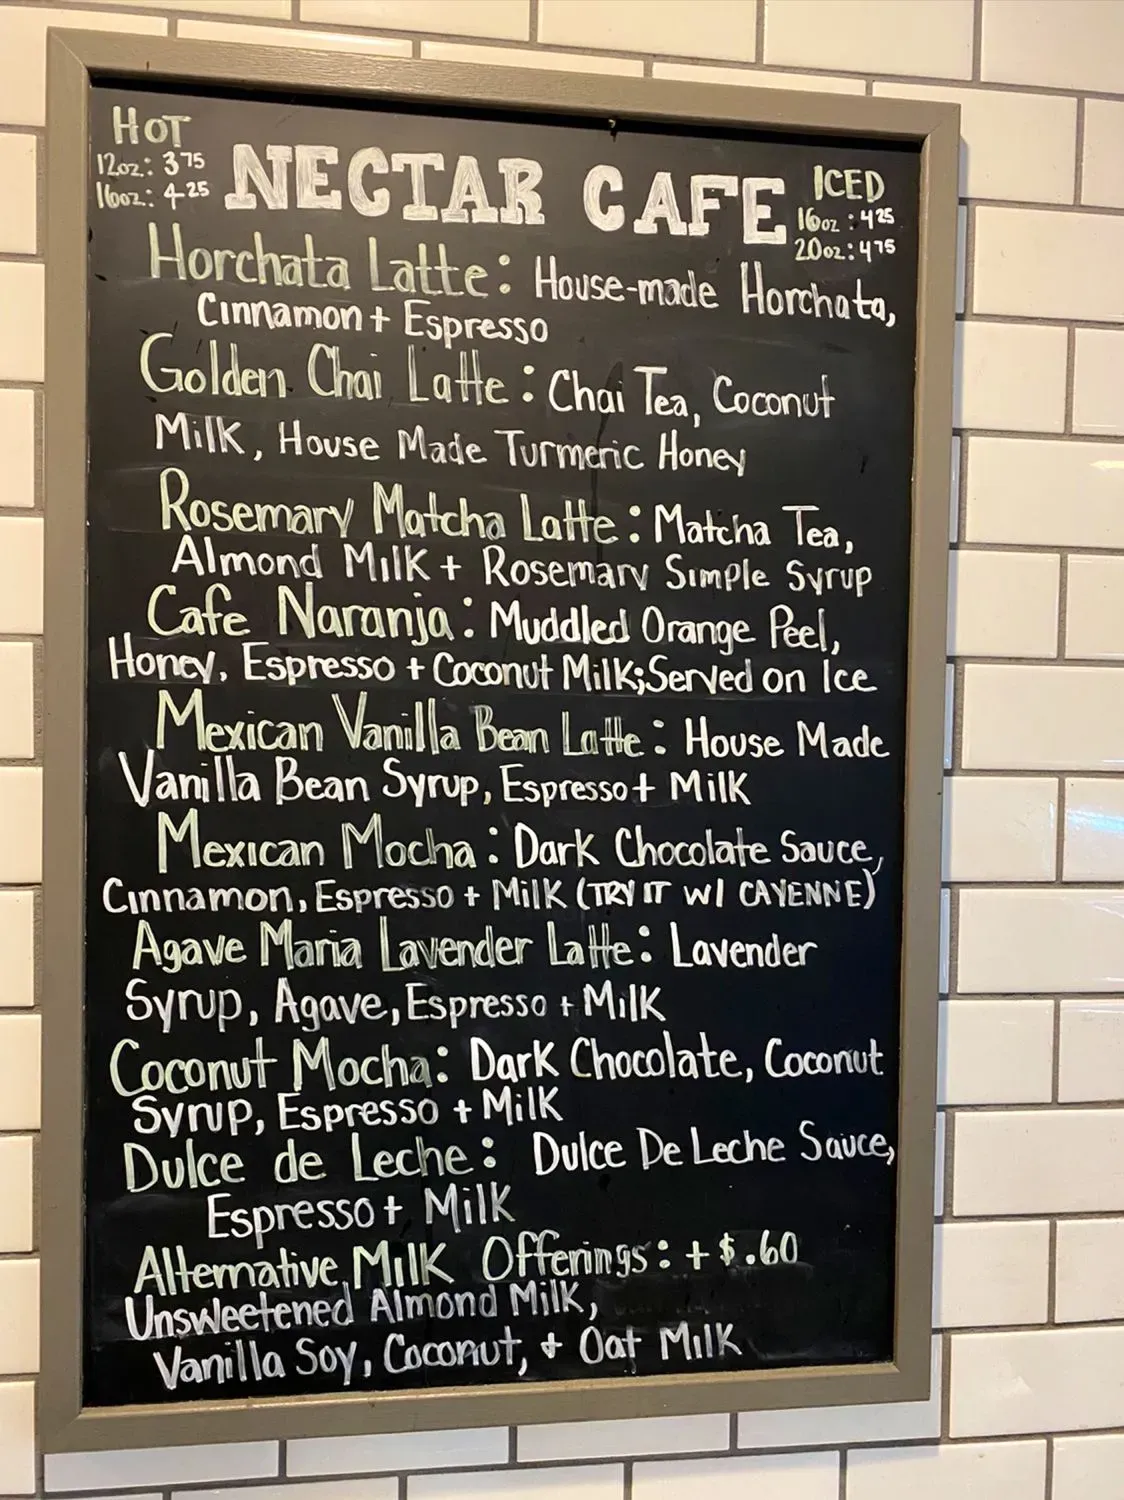 HOT
12oz.: 3.75
16oz.: 4.25
NECTAR CAFE
ICED
16oz: 4.25
20oz: 4.75
Horchata Latte: House-made Horchata,
Cinnamon + Espresso
Golden Chai Latte: Chai Tea, Coconut
Milk, House Made Turmeric Honey
Rosemary Matcha Latte: Matcha Tea,
Almond Milk + Rosemary Simple Syrup
Cafe Naranja: Muddled Orange Peel,
Honey, Espresso + Coconut Milk; Served on Ice
Mexican Vanilla Bean Latte: House Made
Vanilla Bean Syrup, Espresso + Milk
Mexican Mocha: Dark Chocolate Sauce,
Cinnamon, Espresso + Milk (TRY IT W/ CAYENNE)
Agave Maria Lavender Latte: Lavender
Syrup, Agave, Espresso + Milk
Coconut Mocha: Dark Chocolate, Coconut
Syrup, Espresso + Milk
Dulce de Leche: Dulce De Leche Sauce,
Espresso + Milk
Alternative Milk Offerings: + $.60
Unsweetened Almond Milk,
Vanilla Soy, Coconut, + Oat Milk